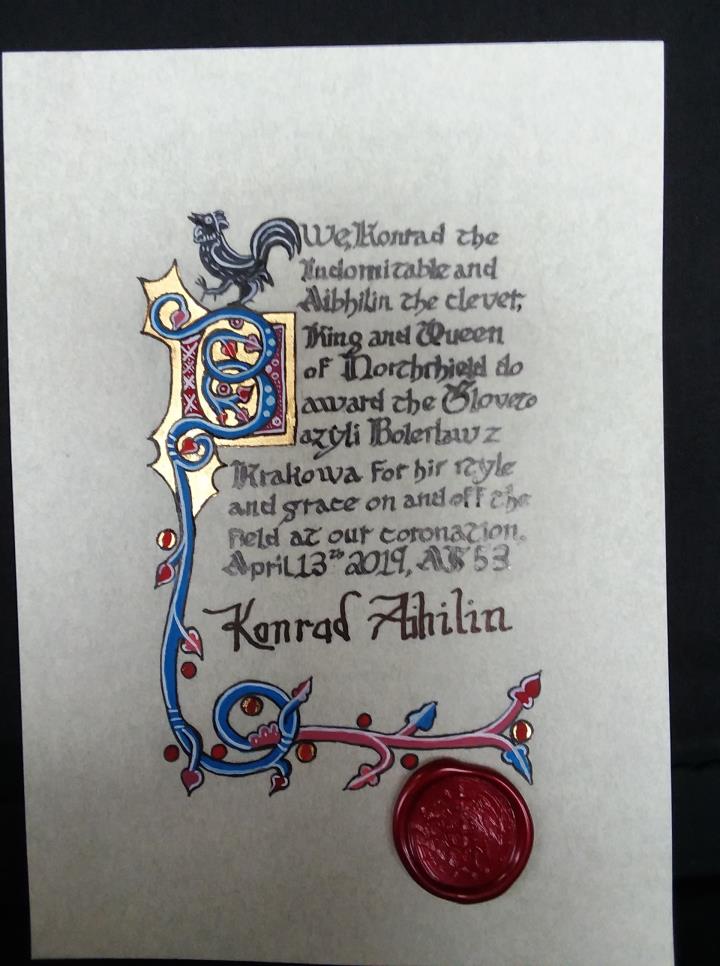 We, Konrad the
Indomitable and
Aibhilin the clever,
King and Queen
of Northshield do
award the Gloveto
azyli Boleslaw z
Krakowa for his style
and grace on and off the
field at our coronation.
April 13th 2019, AS 53
Konrad Aibilin